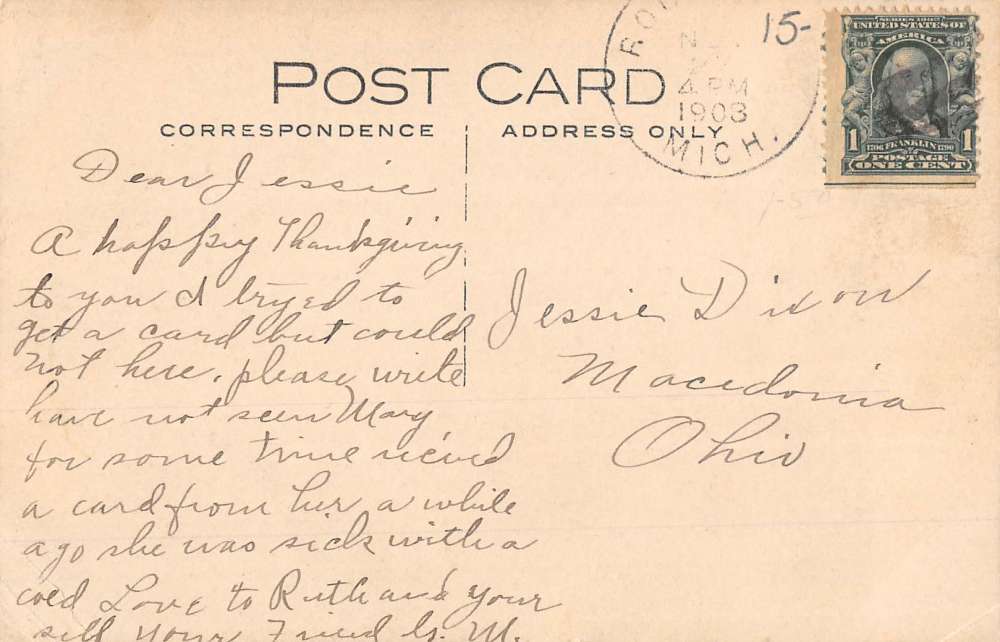 15-
SERIES 1902
UNITED STATES OF
AMERICA
1 1706 FRANKLIN 1790 1
POSTAGE
ONE CENT
4 PM
1908
MICH.
POST CARD
CORRESPONDENCE
ADDRESS ONLY
Dear Jessie
A happy Thanksgiving
to you I tryed to
get a card but could
not here. please write
have not seen Mary
for some time rieved
a card from her a while
ago she was sick with a
cold Love to Ruth and your
self your Friend G. M.
Jessie Dixon
Macedonia
Ohio